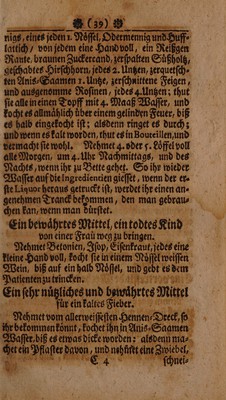 ( 39 )
nigs, eines jeden 1. Nössel, Odermennig und Huff-
lattich, von jedem eine Hand voll, ein Reißgen
Raute, braunen Zuckercand, zerspalten Süßholtz,
geschabtes Hirschhorn, jedes 2. Untzen, zerquetsch-
ten Anis-Saamen 1. Untze, zerschnittene Feigen,
und ausgenomme Rosinen, jedes 4. Untzen; thut
sie alle in einen Topff mit 4. Maaß Wasser, und
kocht es allmählich über einem gelinden Feuer, biß
es halb eingekocht ist; alsdenn ringet es durch;
und wenn es kalt worden, thut es in Bouteillen, und
vermacht sie wohl. Nehmet 4. oder 5. Löffel voll
alle Morgen, um 4. Uhr Nachmittags, und des
Nachts, wenn ihr zu Bette gehet. So ihr wieder
Wasser auf die Ingredienzien giesset, wenn der er-
ste Liquor heraus gedruckt ist, werdet ihr einen an-
genehmen Tranck bekommen, den man gebrau-
chen kan, wenn man dürstet.
Ein bewährtes Mittel, ein todtes Kind
von einer Frau weg zu bringen.
Nehmet Betonien, Isop, Eisenkraut, jedes eine
kleine Hand voll, kocht sie in einem Nössel weissen
Wein, biß auf ein halb Nössel, und gebt es dem
Patienten zu trincken.
Ein sehr nützliches und bewährtes Mittel
für ein kaltes Fieber.
Nehmet vom allerweissesten Hennen-Dreck, so
ihr bekommen könnt, kochet ihn in Anis-Saamen
Wasser, biß es etwas dicke worden: alsdenn ma-
chet ein Pflaster davon, und nehmt eine Zwiebel,
C 4 schnei-